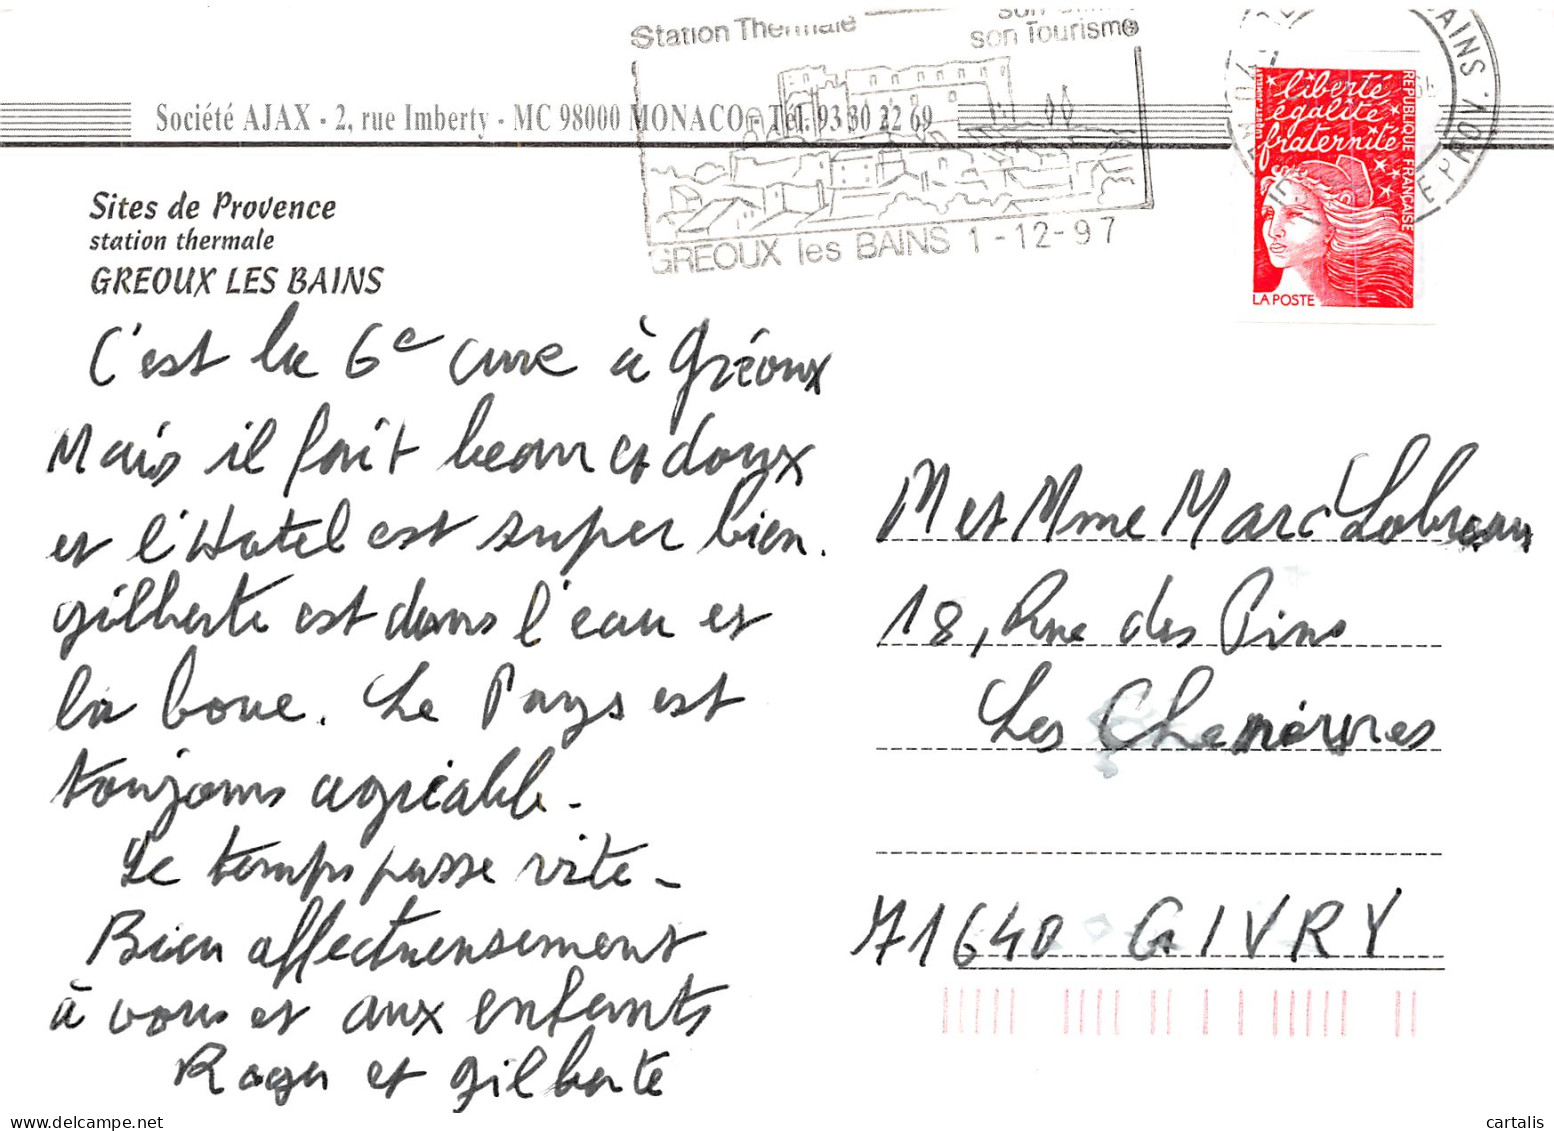 Station Thermale
son Tourisme
Société AJAX - 2, rue Imberty - MC 98000 MONACO - Tél. 93 30 22 69
GREOUX les BAINS 1-12-97
liberté
égalité
fraternité
REPUBLIQUE FRANÇAISE
LA POSTE
Sites de Provence
station thermale
GREOUX LES BAINS
C'est la 6e cure à Gréoux
Mais il fait beau et doux
et l'Hotel est super bien.
gilberte est dans l'eau et
la boue. Le Pays est
toujours agréable -
Le temps passe vite -
Bien affectueusement
à vous et aux enfants
Roger et gilberte
M et Mme Marc Lobreau
18, Rue des Pins
Les
71640 GIVRY
cartalis